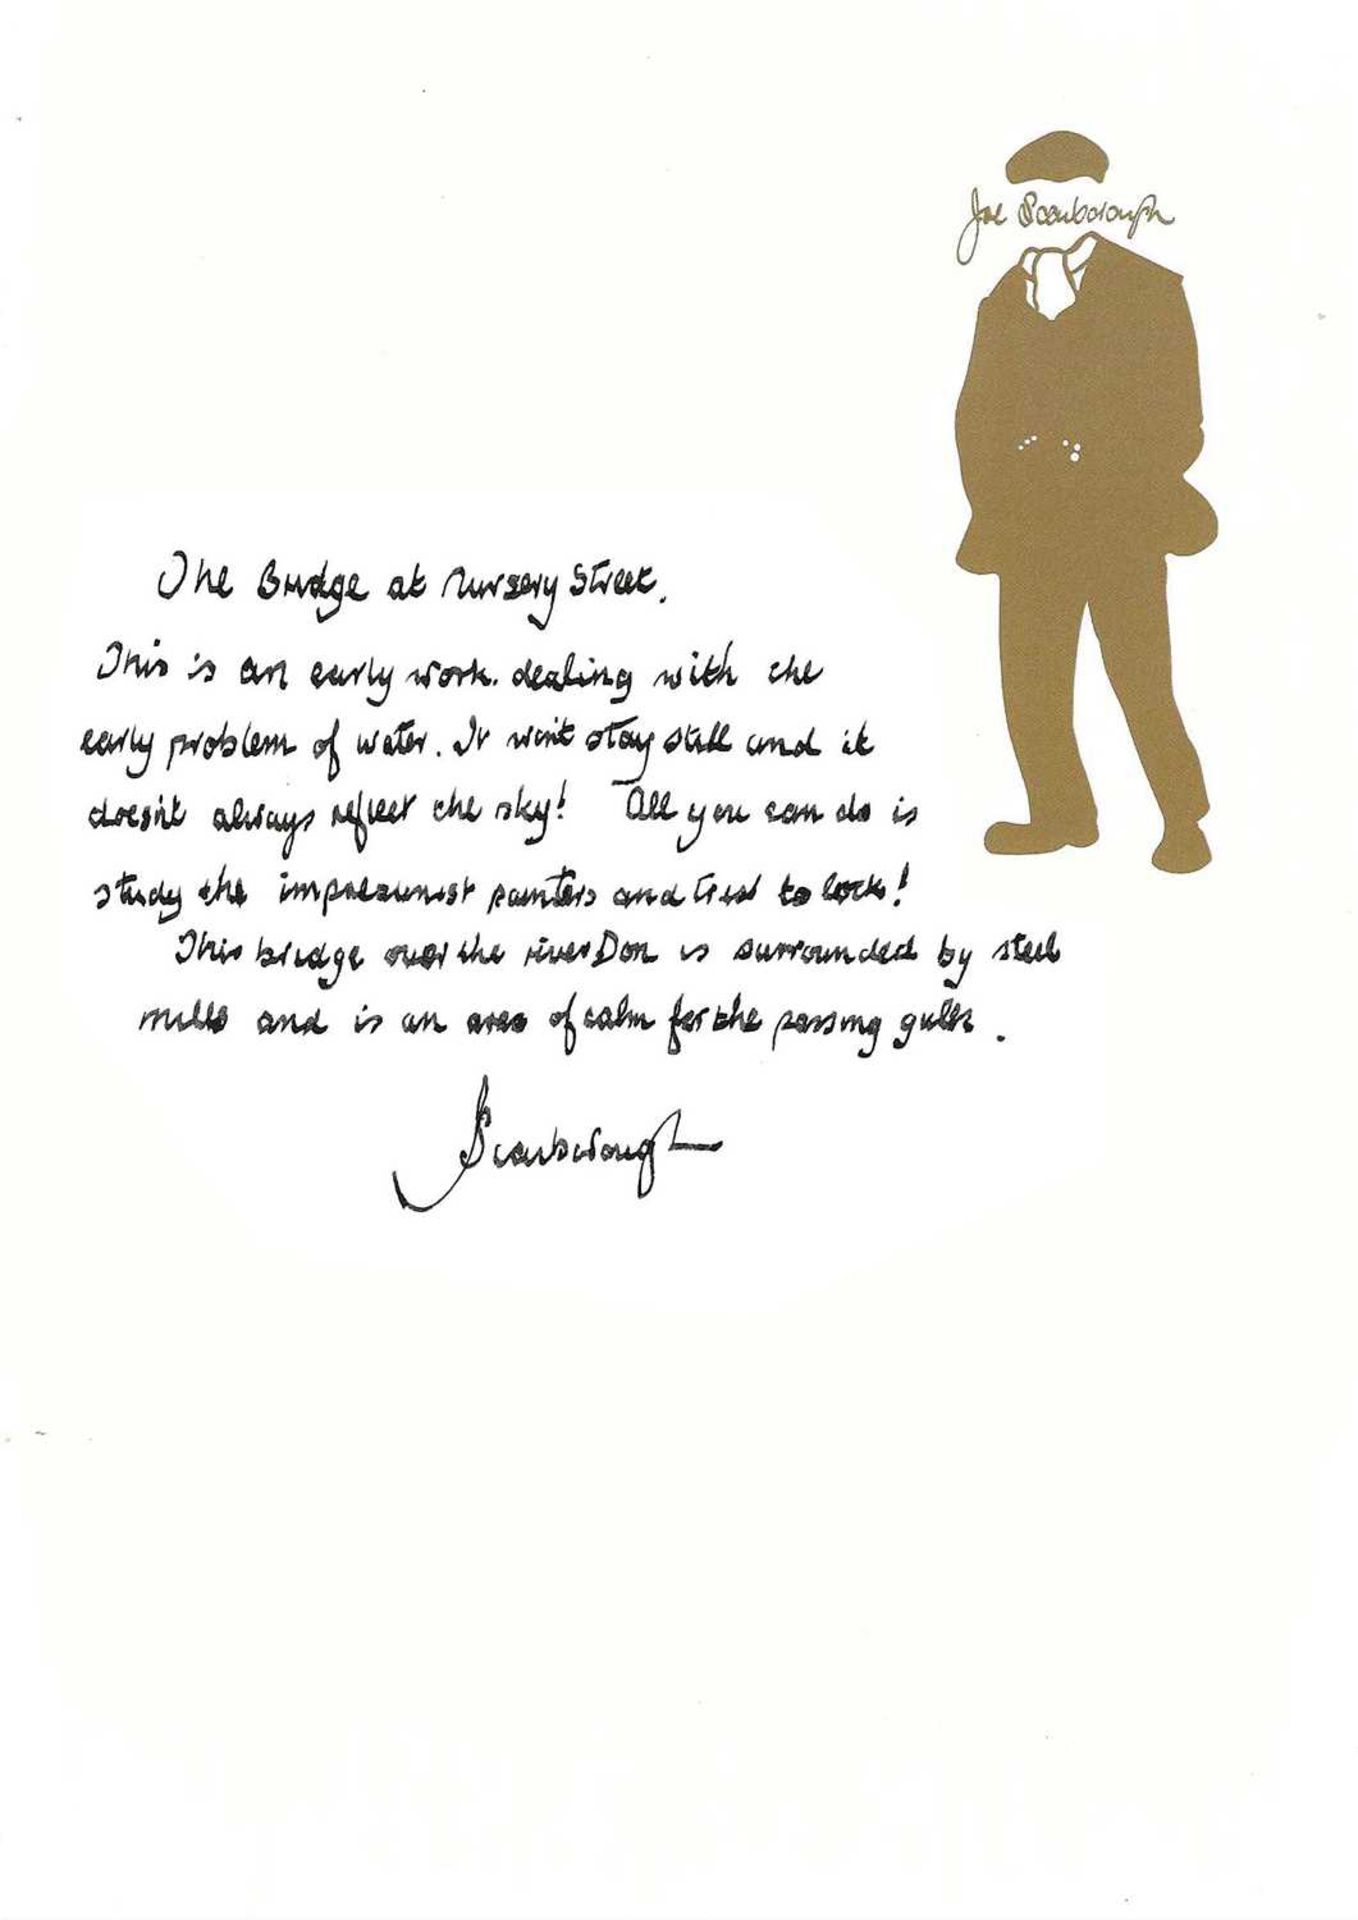 Joe Scarborough
The Bridge at Nursery Street.
This is an early work. dealing with the
early problem of water. It won't stay still and it
doesn't always reflect the sky! All you can do is
study the impressionist painters and trust to luck!
This bridge over the river Don is surrounded by steel
mills and is an area of calm for the passing gulls.
J Scarborough